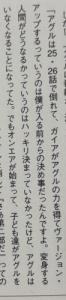 「アグルは25・26話で倒れて、ガイアがアグルの力を得てヴァージョン・
アップするっていうのは僕が入る前からの決め事だったんですよ。変身する
人間がどうなるかっていうのはハッキリ決まってなかったけど、アグルは
いなくなることになってた。でもオンエアが始まって、子ども達がアグルを